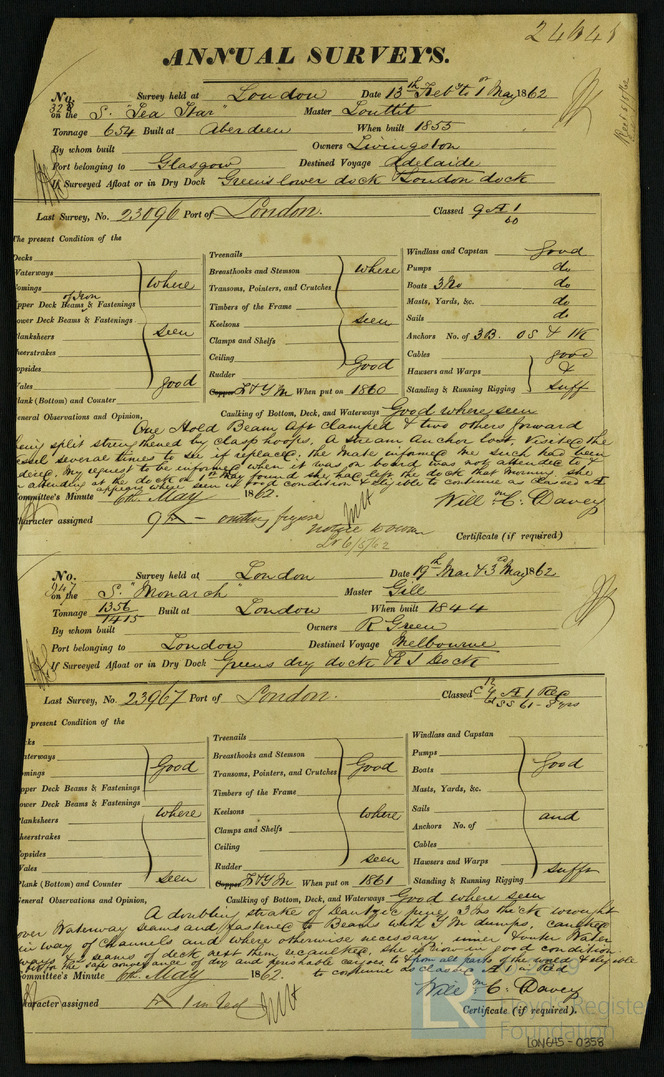 24341
ANNUAL SURVEYS.
No. 328 Survey held at London Date 13th Feby to 1st May 1862
on the S. "Sea Star" Master Louttit
Tonnage 654 Built at Aberdeen When built 1855
By whom built Owners Livingston
Port belonging to Glasgow Destined Voyage Adelaide
If Surveyed Afloat or in Dry Dock Greens lower dock London dock
Last Survey, No. 23096 Port of London. Classed 9 A 1
60
The present Condition of the
Decks
Waterways
Comings
Upper Deck Beams of Iron & Fastenings
Lower Deck Beams & Fastenings
Planksheers
Sheerstrakes
Topsides
Wales
Plank (Bottom) and Counter
where
seen
good
Treenails
Breasthooks and Stemson
Transoms, Pointers, and Crutches
Timbers of the Frame
Keelsons
Clamps and Shelfs
Ceiling
Rudder
where
seen
Good
Copper F & YM When put on 1860
Windlass and Capstan good
Pumps do
Boats 3 No do
Masts, Yards, &c. do
Sails do
Anchors No. of 3B. 0S & 1K
Cables
Hawsers and Warps
Standing & Running Rigging
good
&
suff
Caulking of Bottom, Deck, and Waterways Good where seen
General Observations and Opinion,
One Hold Beam Aft clamped & two others forward
being split strengthened by clasp hoops. A stream Anchor lost. Visited the
vessel several times to see if replaced; the mate informed me such had been
ordered. My request to be informed when it was on board was not attended to &
attending at the dock on 1st May found she had left the dock that morning. She
appears where seen in good condition & eligible to continue as classed A1
Committee's Minute 6th May 1862.
Will m C. Davey
Character assigned 9 A
Lr 6/5/62
Certificate (if required)
No. 947 Survey held at London Date 19th Mar & 3rd May 1862
on the S. "Monarch" Master Gill
Tonnage 1356
1415 Built at London When built 1844
By whom built Owners R Green
Port belonging to London Destined Voyage Melbourne
If Surveyed Afloat or in Dry Dock Greens dry dock & I Dock
Last Survey, No. 23967 Port of London. Classed 12 A 1 Red
SS 61 - 8 yrs
present Condition of the
Decks
Waterways
Comings
Upper Deck Beams & Fastenings
Lower Deck Beams & Fastenings
Planksheers
Sheerstrakes
Topsides
Wales
Plank (Bottom) and Counter
Good
where
seen
Treenails
Breasthooks and Stemson
Transoms, Pointers, and Crutches
Timbers of the Frame
Keelsons
Clamps and Shelfs
Ceiling
Rudder
Good
where
seen
Copper F & YM When put on 1861
Windlass and Capstan
Pumps
Boats
Masts, Yards, &c.
Sails
Anchors No. of
Cables
Hawsers and Warps
Standing & Running Rigging
good
and
suff
Caulking of Bottom, Deck, and Waterways Good where seen
General Observations and Opinion,
A doubling strake of Dantzic pine 3 Ins thick wrought
over Waterway seams and fastened to Beams with YM dumps, caulked
in way of Channels and where otherwise necessary inner & outer Water
ways & seams of deck next them recaulked she is now in good condition
& fit for the safe conveyance of dry and perishable cargoes to & from all parts of the world & eligible
to continue as classed A 1 Red
Committee's Minute 6th May 1862.
Will m C. Davey
Character assigned A 1 in Red
Certificate (if required).
Lloyd's Register
Foundation
LON645-0358